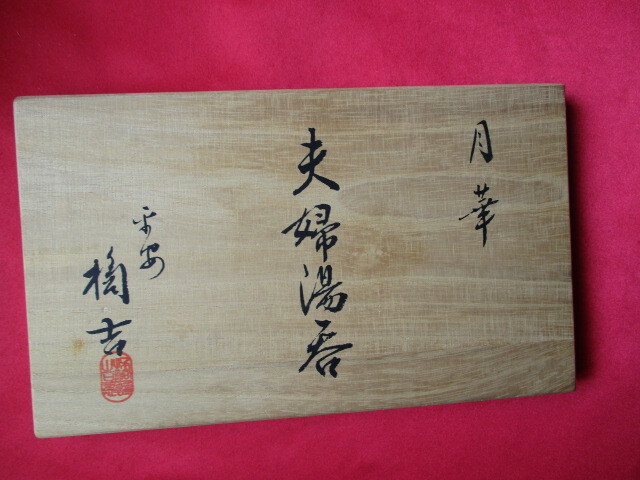 月華
夫婦湯呑
平安
陶吉